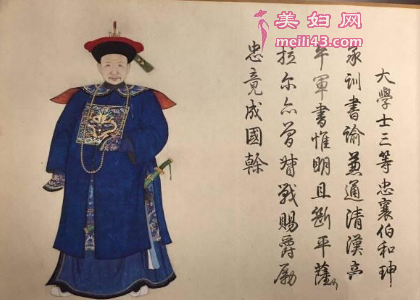 美妇网
meili43.com
大學士三等忠襄伯和珅
承訓書諭兼通清漢旁
午軍書惟明且斷平薩
拉尔亦曾督戰賜爵勵
忠竟成國幹